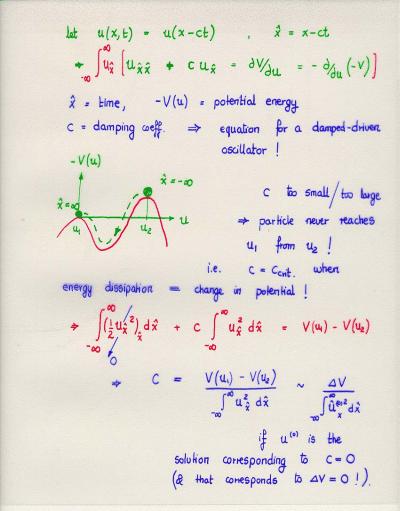 let u(x,t) = u(x-ct) , x̂ = x-ct
→ ∫_{-∞}^{∞} u_x̂ [ u_x̂x̂ + c u_x̂ = ∂V/∂u = - ∂/∂u (-V) ]
x̂ = time, -V(u) = potential energy
c = damping coeff. ⇒ equation for a damped-driven
oscillator !
-V(u)
x̂ = -∞
x̂ = ∞
u₁ u₂ u
c too small/too large
⇒ particle never reaches
u₁ from u₂ !
i.e. c = c_crit. when
energy dissipation = change in potential !
⇒ ∫_{-∞}^{∞} (½ u_x̂²)_x̂ dx̂ + c ∫_{-∞}^{∞} u_x̂² dx̂ = V(u₁) - V(u₂)
0
⇒ c = (V(u₁) - V(u₂)) / ∫_{-∞}^{∞} u_x̂² dx̂ ~ ΔV / ∫_{-∞}^{∞} û_x^{(0)2} dx̂
if u⁽⁰⁾ is the
solution corresponding to c=0
(& that corresponds to ΔV = 0 !).